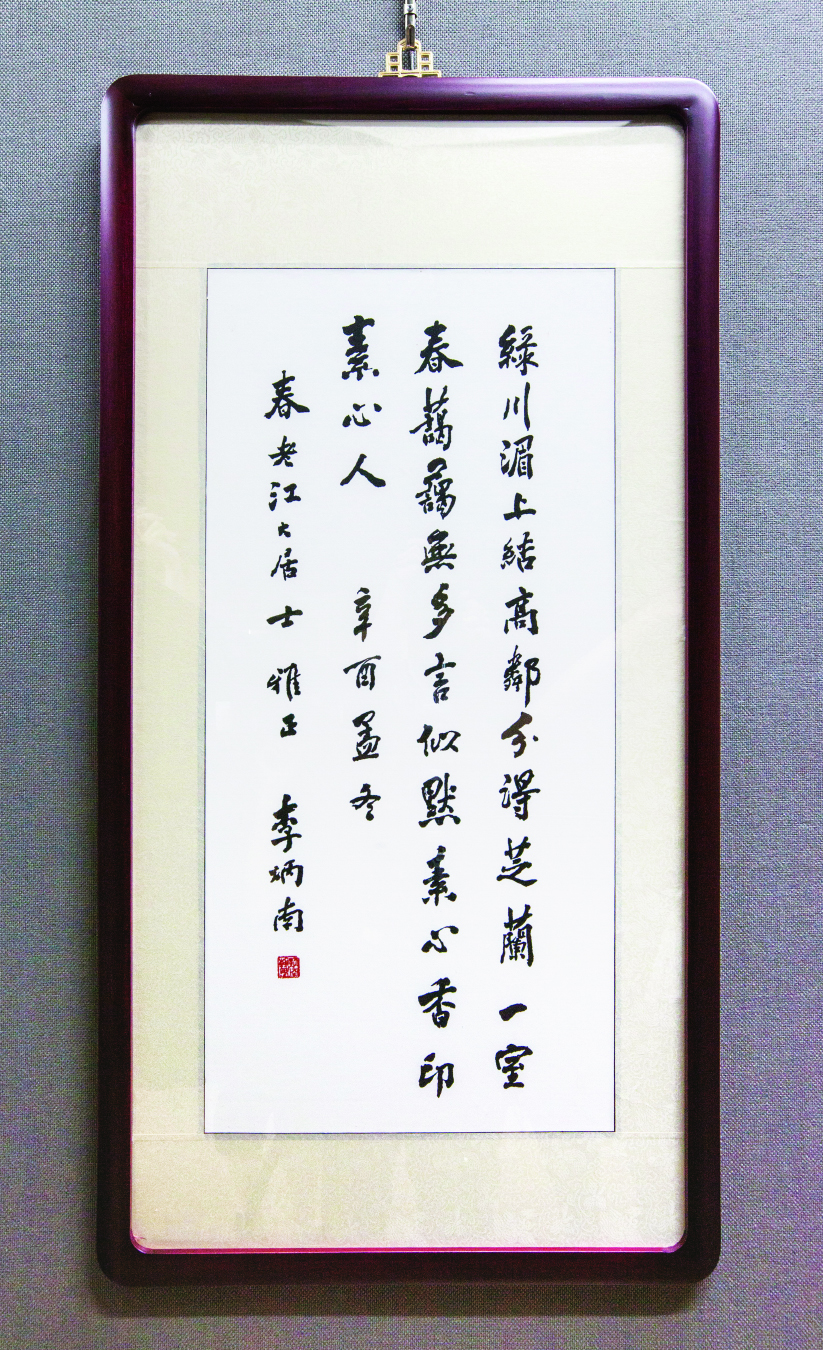 綠川湄上結高鄰分得芝蘭一室
春藹藹無多言似默素心香印
素心人 辛酉孟冬
春老江大居士 雅正 李炳南